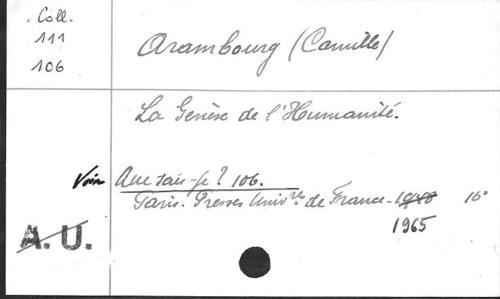 Coll.
111
106
Arambourg (Camille)
La Genèse de l'Humanité.
Voir Que sais-je? 106.
Paris. Presses Univ.re de France - 1948 16°
1965
A. U.